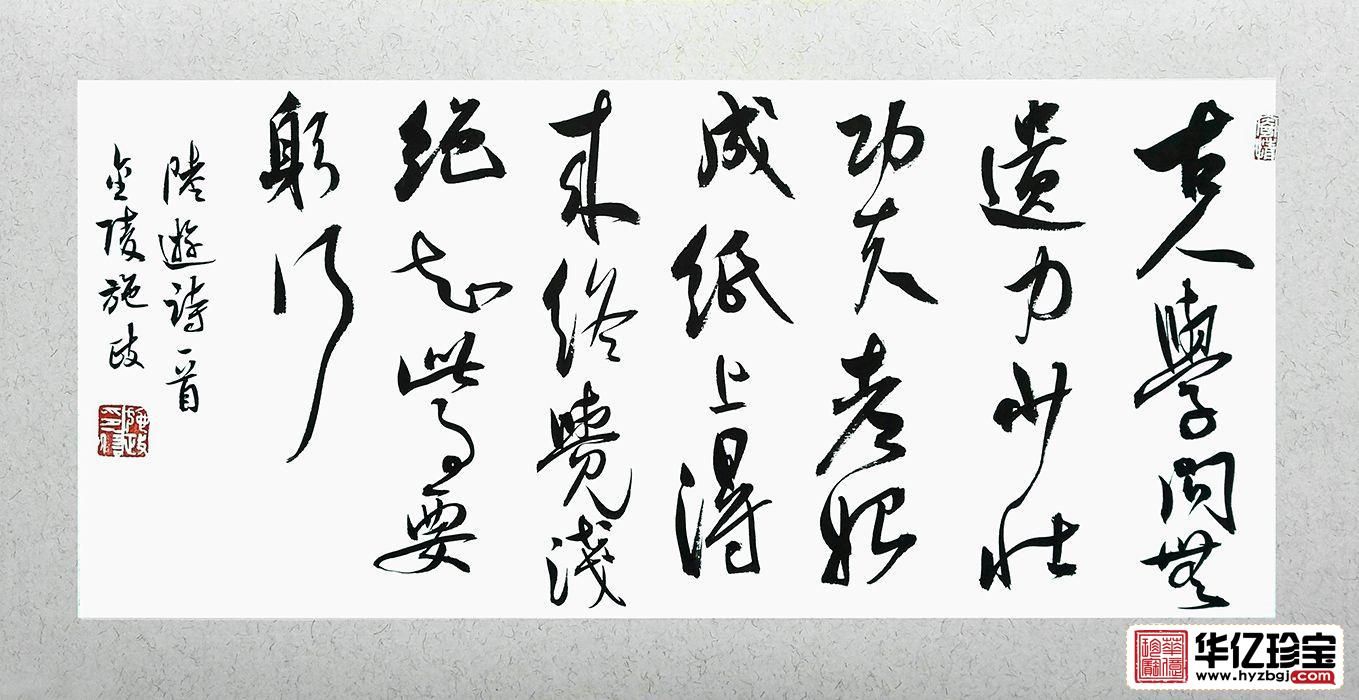 古人學問無
遺力少壯
功夫老始
成紙上得
来終覺淺
绝知此事要
躬行
陸游詩一首
金陵施政
华亿珍宝
www.hyzbgj.com